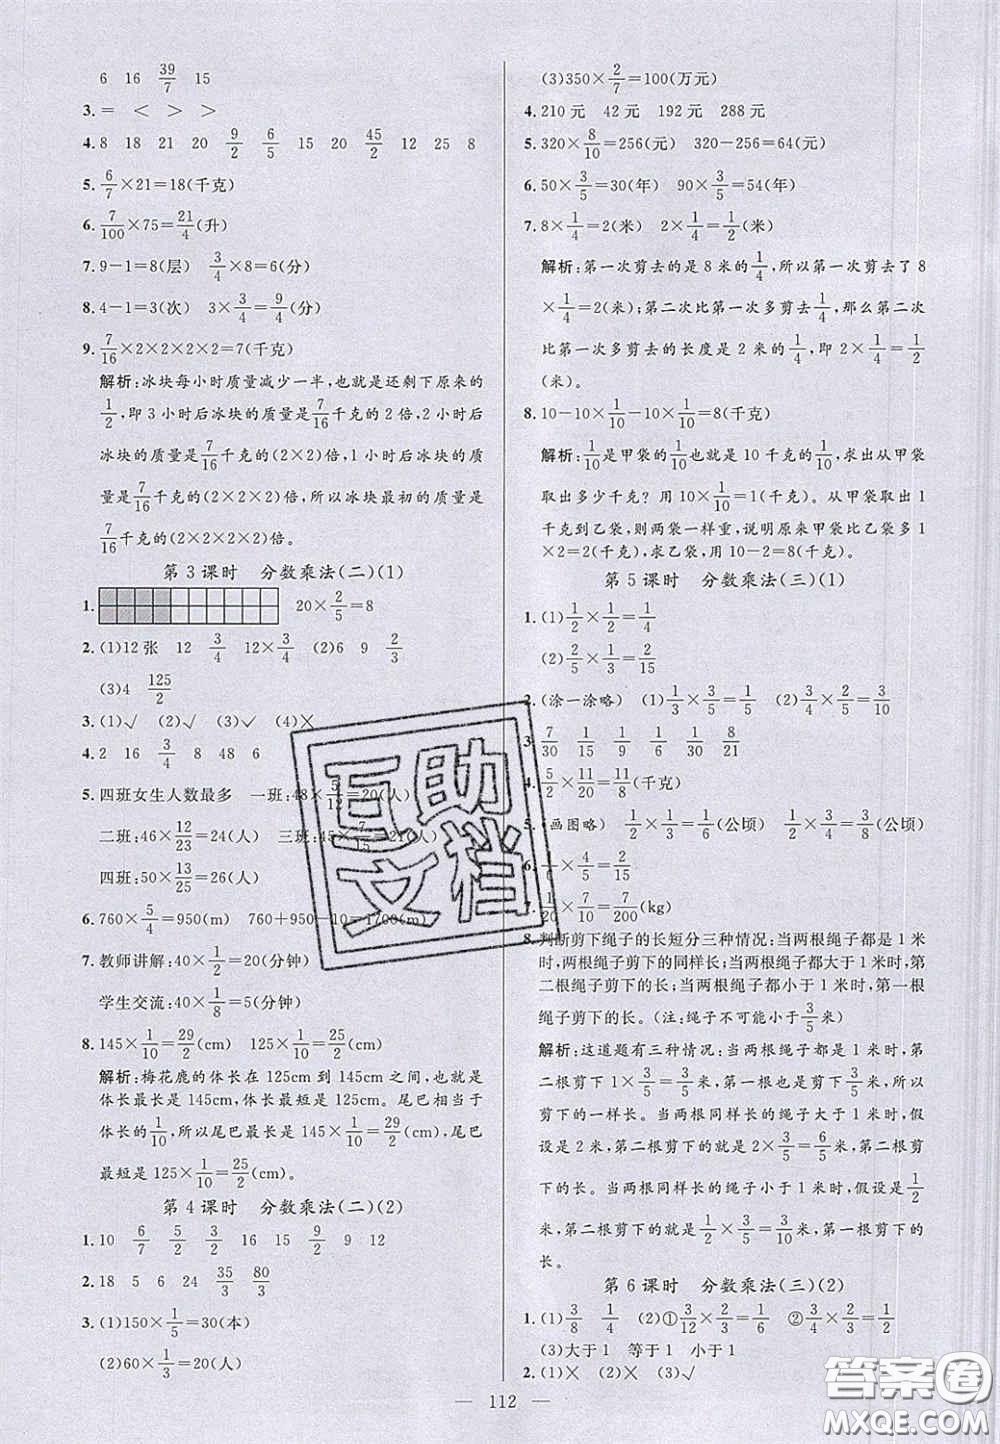 6 16 39/7 15
3. = < > >
4. 8 18 21 20 9/2 6/5 15 20 45/2 12 25 8
5. 6/7×21=18(千克)
6. 7/100×75=21/4(升)
7. 9-1=8(层) 3/4×8=6(分)
8. 4-1=3(次) 3×3/4=9/4(分)
9. 7/16×2×2×2×2=7(千克)
解析:冰块每小时质量减少一半,也就是还剩下原来的
1/2,即3小时后冰块的质量是7/16千克的2倍,2小时后
冰块的质量是7/16千克的(2×2)倍,1小时后冰块的质
量是7/16千克的(2×2×2)倍,所以冰块最初的质量是
7/16千克的(2×2×2×2)倍。
第3课时 分数乘法(二)(1)
1. 20×2/5=8
2. (1)12张 12 3/4 12×3/4 (2)6 9 2/3
(3)4 125/2
3. (1)√ (2)√ (3)√ (4)×
4. 2 16 3/4 8 48 6
5. 四班女生人数最多 一班:48×5/12=20(人)
二班:46×12/23=24(人) 三班:45×7/15=21(人)
四班:50×13/25=26(人)
6. 760×5/4=950(m) 760+950-10=1700(m)
7. 教师讲解:40×1/2=20(分钟)
学生交流:40×1/8=5(分钟)
8. 145×1/10=29/2(cm) 125×1/10=25/2(cm)
解析:梅花鹿的体长在125cm到145cm之间,也就是
体长最长是145cm,体长最短是125cm。尾巴相当于
体长的1/10,所以尾巴最长是145×1/10=29/2(cm),尾巴
最短是125×1/10=25/2(cm)。
第4课时 分数乘法(二)(2)
1. 10 6/7 5/2 3/2 16 15 1/2 9 12
2. 18 5 6 24 35/3 80/3
3. (1)150×1/5=30(本)
(2)60×1/3=20(人)
(3)350×2/7=100(万元)
4. 210元 42元 192元 288元
5. 320×8/10=256(元) 320-256=64(元)
6. 50×3/5=30(年) 90×3/5=54(年)
7. 8×1/4=2(米) 2×1/4=1/2(米)
解析:第一次剪去的是8米的1/4,所以第一次剪去了8
×1/4=2(米);第二次比第一次多剪去1/4,那么第二次
比第一次多剪去的长度是2米的1/4,即2×1/4=1/2
(米)。
8. 10-10×1/10-10×1/10=8(千克)
解析:1/10是甲袋的1/10也就是10千克的1/10,求从甲袋
取出多少千克?用10×1/10=1(千克)。从甲袋取出1
千克到乙袋,则两袋一样重,说明原来甲袋比乙袋多1
×2=2(千克),求乙袋,用10-2=8(千克)。
第5课时 分数乘法(三)(1)
1. (1)1/2×1/2=1/4
(2)2/5×1/3=2/15
2. (涂一涂略) (1)1/3×3/5=1/5 (2)2/5×3/4=3/10
3. 7/30 1/15 1/9 9/30 8/21
4. 5/12×11/20=11/20(千克)
5. (画图略) 1/3×1/2=1/6(公顷) 1/2×3/4=3/8(公顷)
6. ×4/5=1/5
7. 1/20×7/10=7/200(kg)
8. 判断剪下绳子的长短分三种情况:当两根绳子都是1米
时,两根绳子剪下的同样长;当两根绳子都大于1米时,第
二根绳子剪下的长;当两根绳子都小于1米时,第一根
绳子剪下的长。(注:绳子不可能小于3/5米)
解析:这道题有三种情况:当两根绳子都是1米时,第
二根剪下1×3/5=3/5(米),第一根剪下的也是3/5米,所以
剪下的一样长。当两根同样长的绳子大于1米时,假
设是2米,第二根剪下的就是2×3/5=6/5(米),第二根剪
下的长。当两根同样长的绳子小于1米时,假设是1/2
米,第二根剪下的就是1/2×3/5=3/10(米),第一根剪下的
长。
第6课时 分数乘法(三)(2)
1. (1)3/8 1/4 (2)①3/12×2/3=1/6 ②
(3)大于1 等于1 小于1
2. (1)× (2)× (3)√
112
互助
文档
答案圈
MXQE.COM